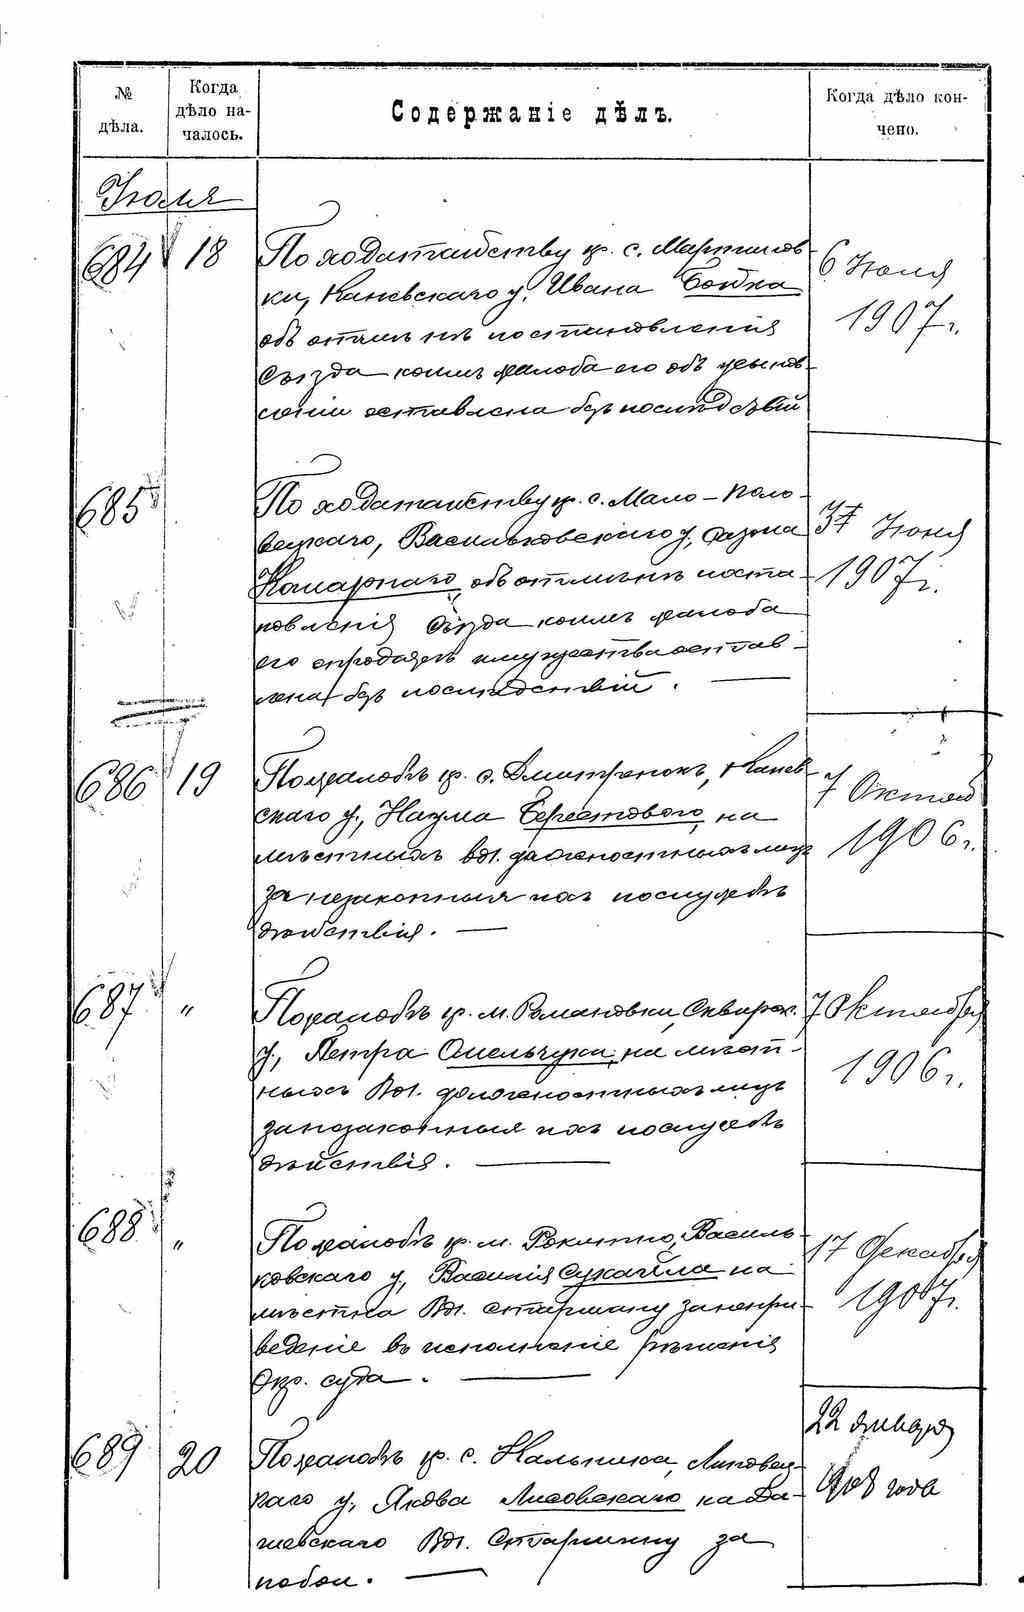 № дѣла.
Когда дѣло на-
чалось.
Содержаніе дѣлъ.
Когда дѣло кон-
чено.
Июля
684 18 По ходатайству кр. с. Мартинов-
ки, Каневскаго у. Ивана Бойка
объ отмѣнѣ постановленія
Съѣзда коимъ жалоба его объ
оставлена безъ послѣдствій
6 Июля
1907 г.
685 По ходатайству кр. с. Мало-Поло-
вецкаго, Васильковскаго у,
Комарнаго, объ отмѣнѣ поста-
новленія Съѣзда коимъ жалоба
его о продажѣ имущества остав-
лена безъ послѣдствій. —
Июня
1907 г.
686 19 По жалобѣ кр. с. Дмитренокъ, Канев-
скаго у., Наума Берестового, на
мѣстныхъ вол. должностныхъ лицъ
за незаконныя ихъ по службѣ
дѣйствія. —
7 Октяб
1906 г.
687 " По жалобѣ кр. м. Романовки, Сквирск.
у., Петра Омельчука, на мѣст-
ныхъ Вол. должностныхъ лицъ
за незаконныя ихъ по службѣ
дѣйствія. —
7 Октября
1906 г.
688 " По жалобѣ кр. м. Рокитно, Василь-
ковскаго у, Василія Сукайла на
мѣстна Вол. старшину за непри-
веденіе въ исполненіе рѣшенія
Окр. суда. —
17 Декабря
1907 г.
689 20 По жалобѣ кр. с. Кальника, Липовец-
каго у, Якова Лисовскаго на Да-
шевскаго Вол. Старшину за
побои. —
22 января
1908 года